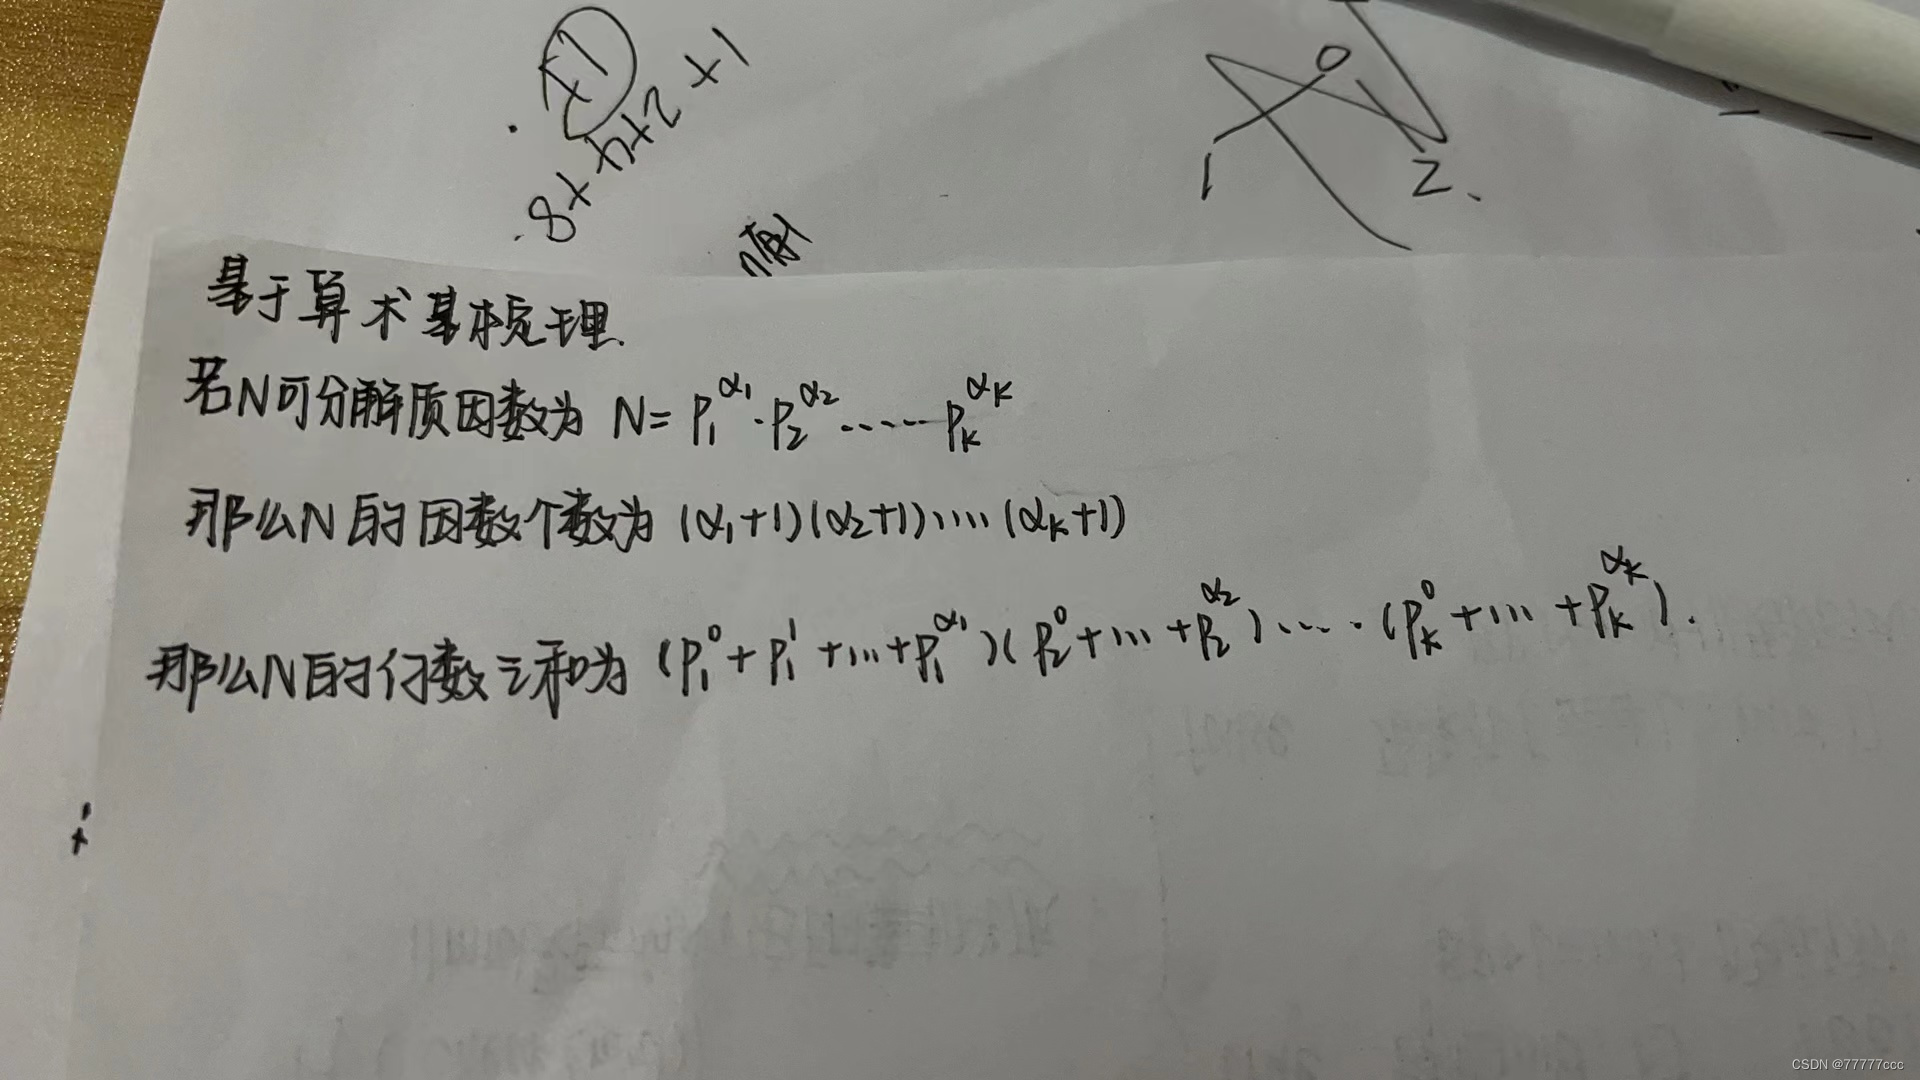 +1
8+4+2+1
0
1
2.
基于算术基本定理.
若N可分解质因数为 N = P₁^α₁ · P₂^α₂ …… Pₖ^αₖ
那么N的因数个数为 (α₁+1)(α₂+1)……(αₖ+1)
那么N的约数之和为 (P₁⁰ + P₁¹ + … + P₁^α₁)(P₂⁰ + … + P₂^α₂) …… (Pₖ⁰ + … + Pₖ^αₖ).
CSDN @77777ccc